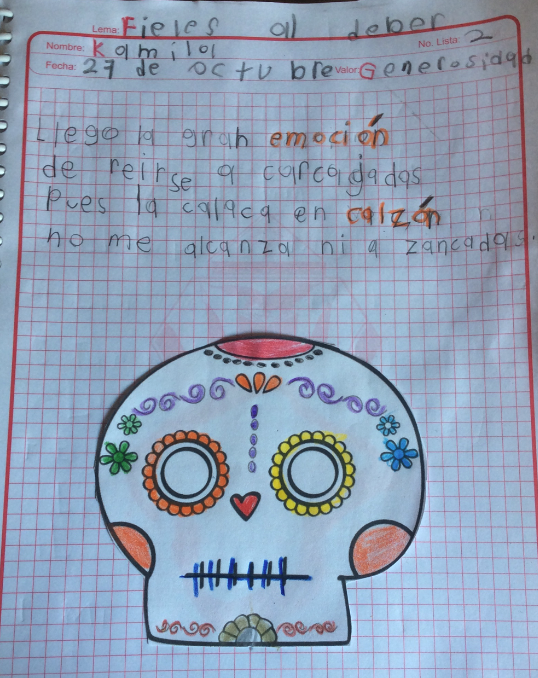 Lema: Fieles al deber
Nombre: Kamila No. Lista: 2
Fecha: 27 de octubre Valor: Generosidad
Llego la gran emoción
de reirse a carcagadas
Pues la calaca en calzón
no me alcanza ni a zancadas.